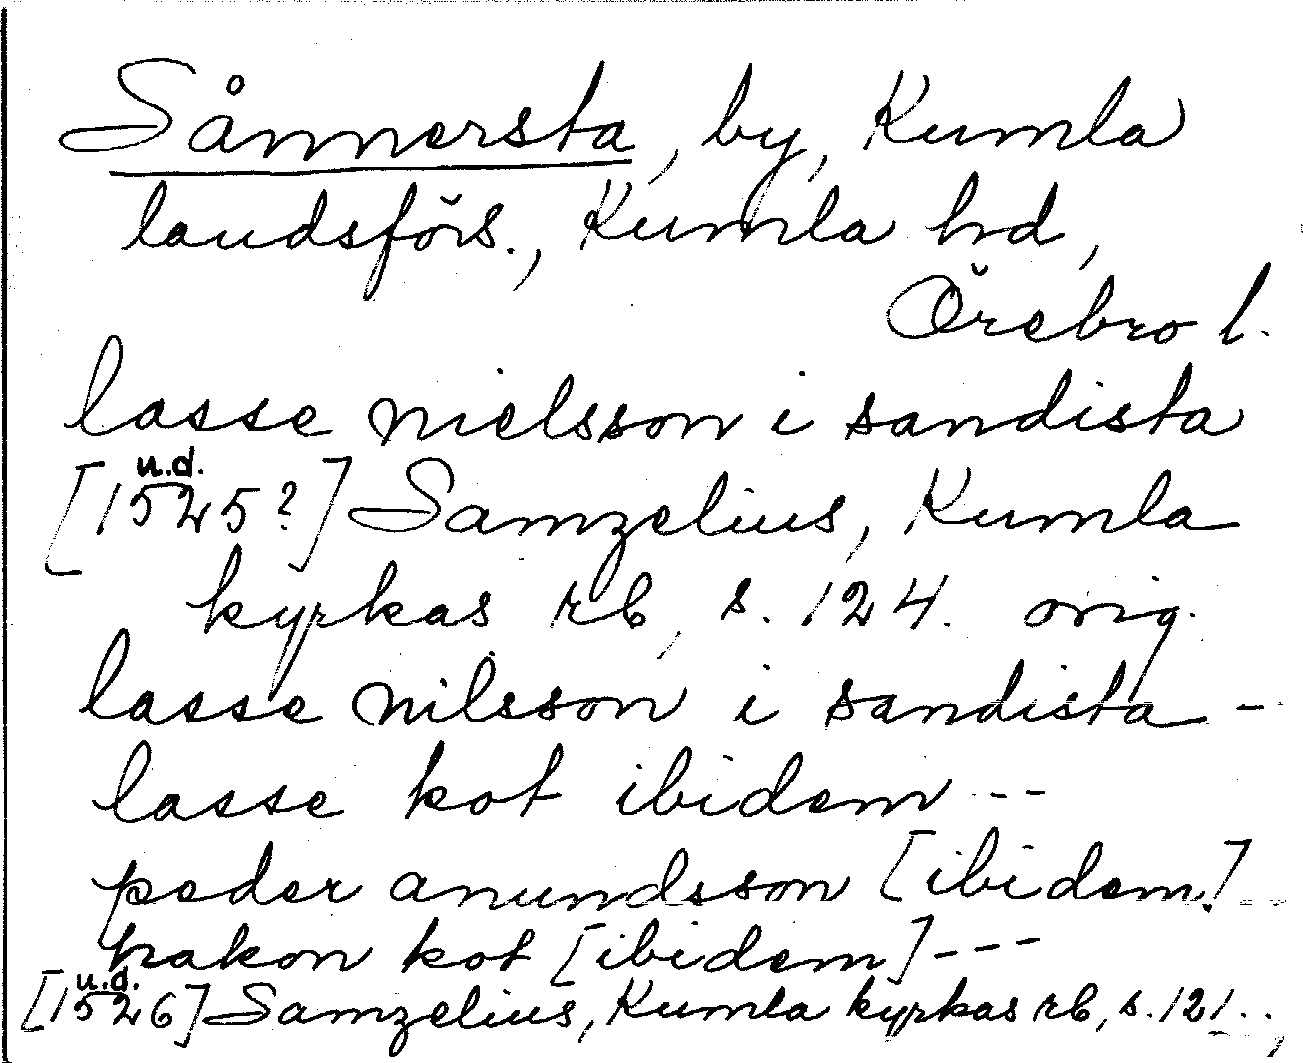 Sånnersta, by, Kumla
landsförs., Kumla hd,
Örebro l.
lasse nielsson i sandista
u.d.
[1525?] Samzelius, Kumla
kyrkas rb, s. 124. orig.
lasse nilsson i sandista -
lasse kot ibidem ---
peder anundsson [ibidem] --
hakon kot [ibidem] ---
u.d.
[1526] Samzelius, Kumla kyrkas rb, s. 121..,